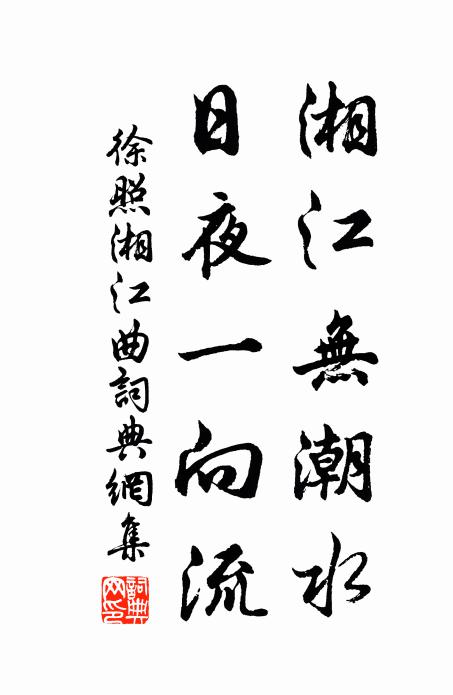 湘江無潮水
日夜一向流
徐照湘江曲詞典網集
詞典网印